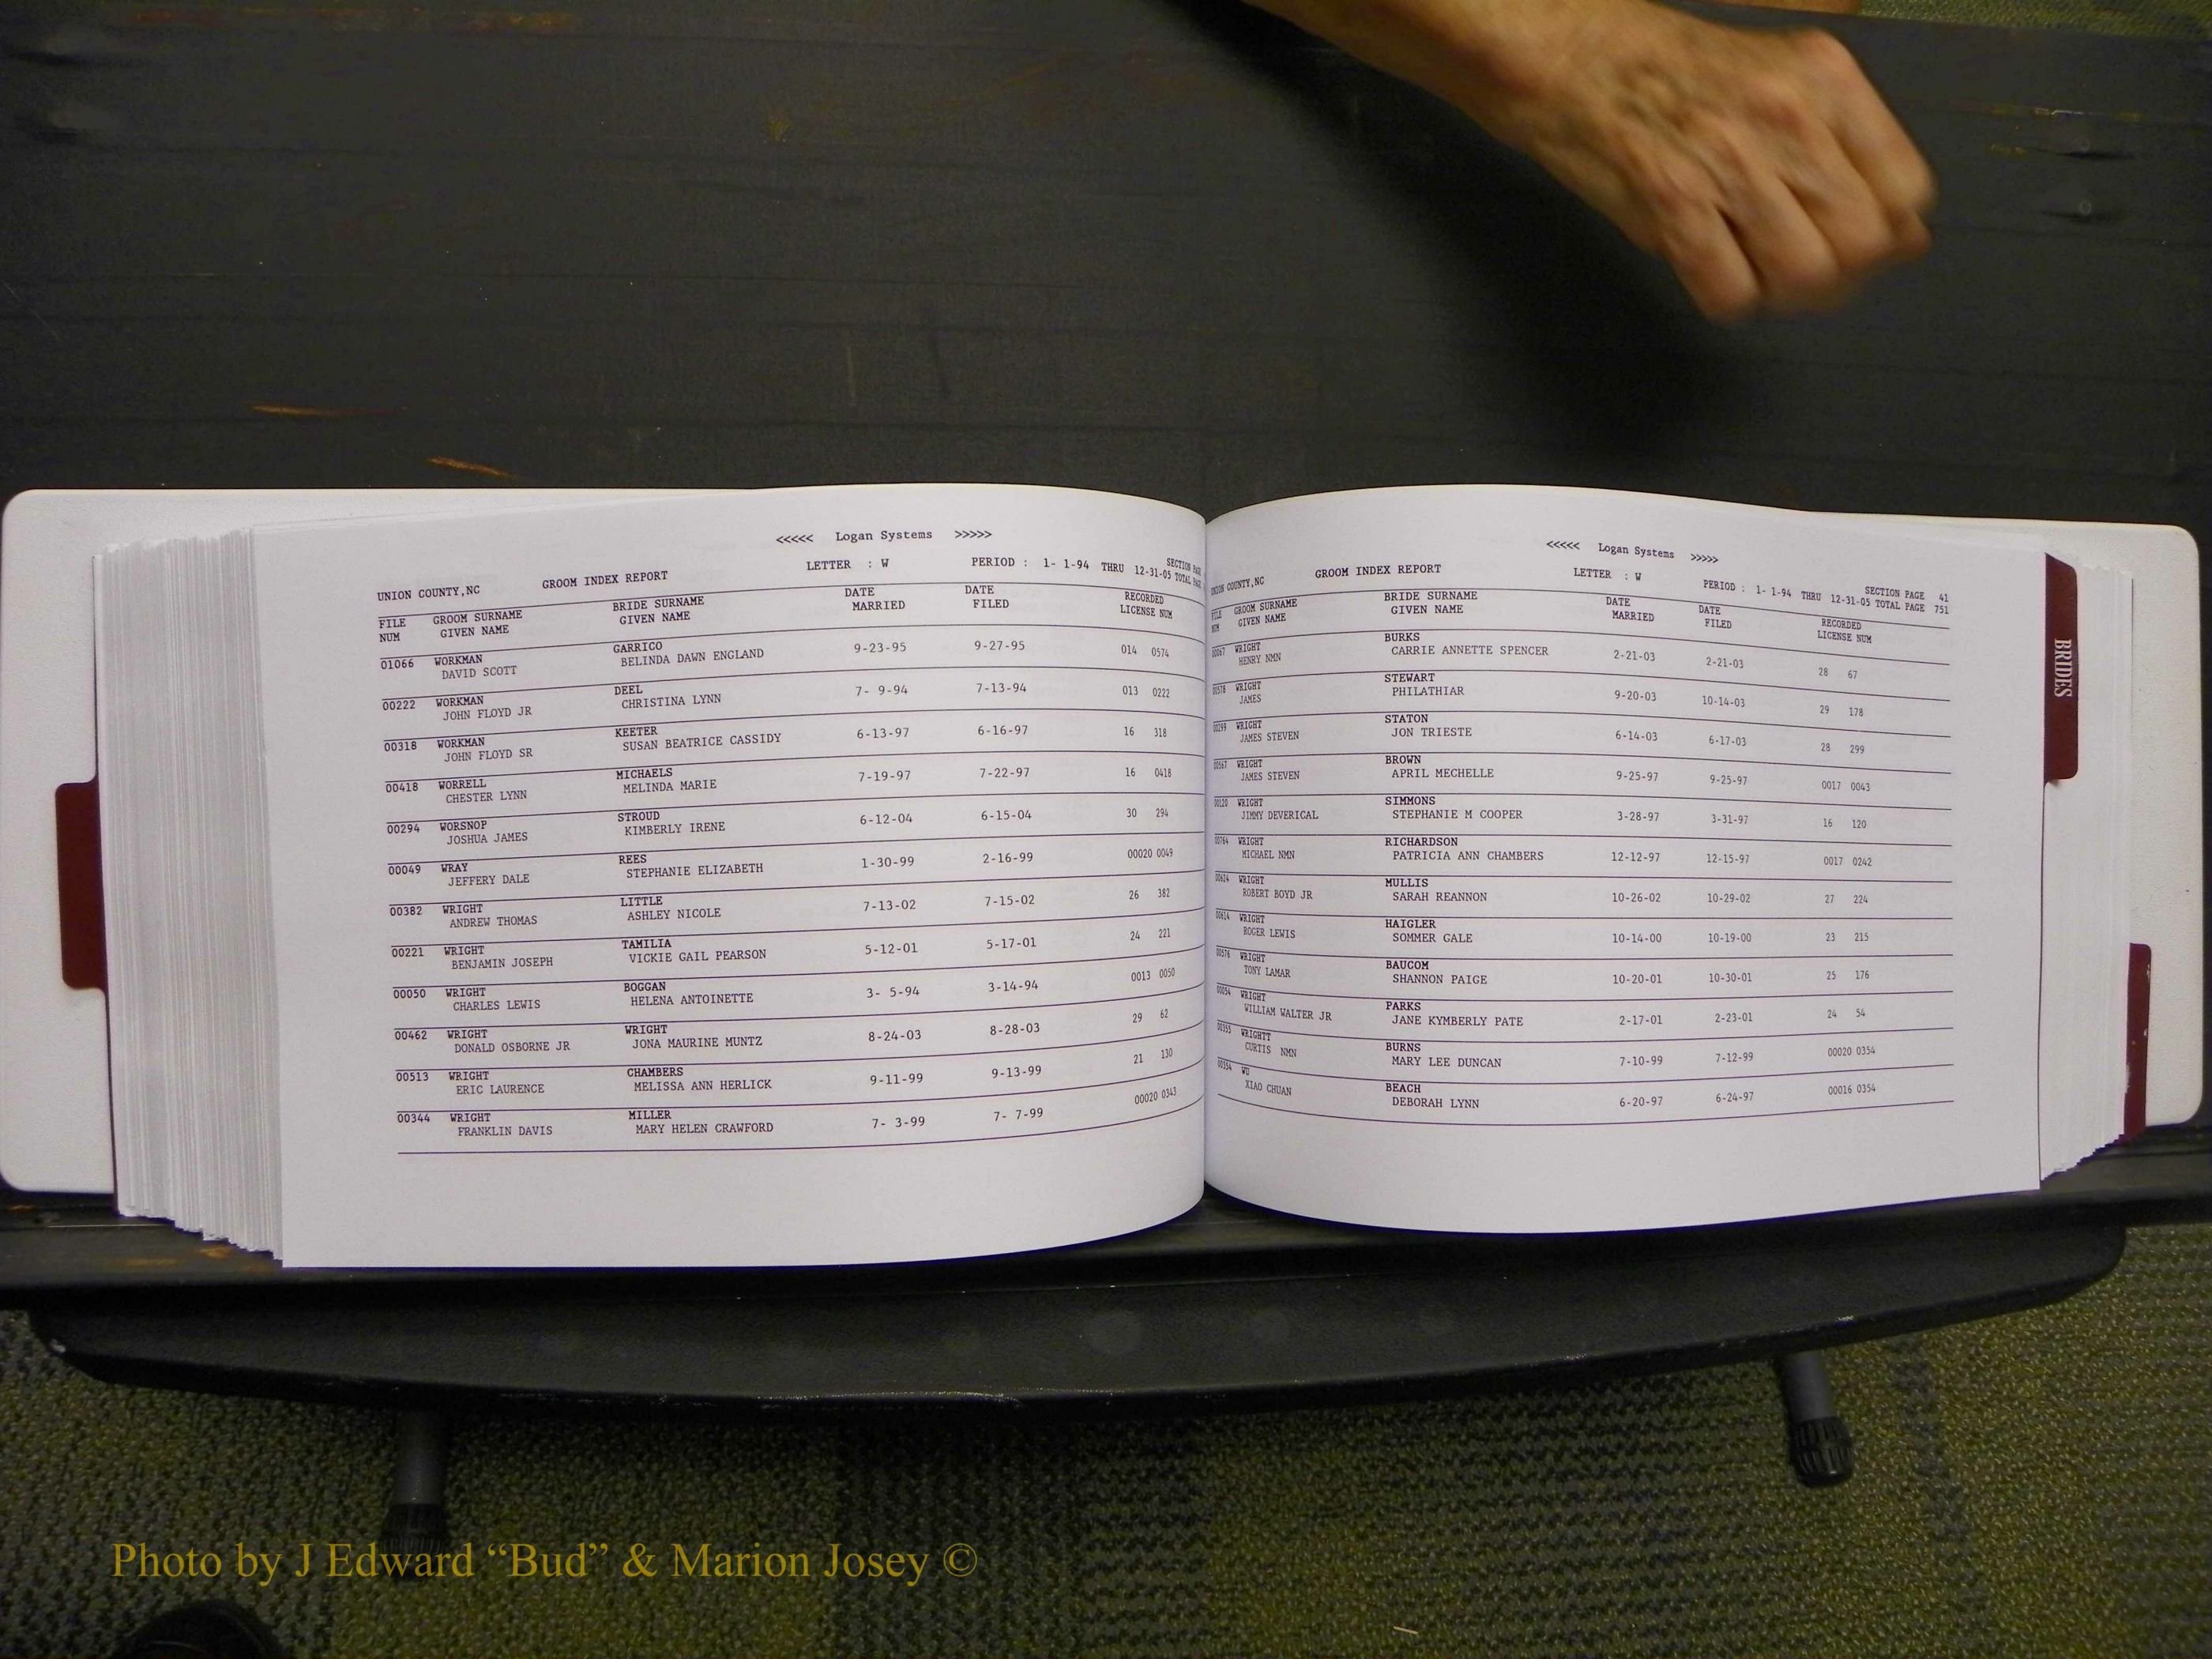 <<<<< Logan Systems >>>>>
UNION COUNTY,NC GROOM INDEX REPORT LETTER : W PERIOD : 1- 1-94 THRU 12-31-05 SECTION PAGE
TOTAL PAGE
FILE GROOM SURNAME BRIDE SURNAME DATE DATE RECORDED
NUM GIVEN NAME GIVEN NAME MARRIED FILED LICENSE NUM
01066 WORKMAN GARRICO 9-23-95 9-27-95 014 0574
DAVID SCOTT BELINDA DAWN ENGLAND
00222 WORKMAN DEEL 7- 9-94 7-13-94 013 0222
JOHN FLOYD JR CHRISTINA LYNN
00318 WORKMAN KEETER 6-13-97 6-16-97 16 318
JOHN FLOYD SR SUSAN BEATRICE CASSIDY
00418 WORRELL MICHAELS 7-19-97 7-22-97 16 0418
CHESTER LYNN MELINDA MARIE
00294 WORSNOP STROUD 6-12-04 6-15-04 30 294
JOSHUA JAMES KIMBERLY IRENE
00049 WRAY REES 1-30-99 2-16-99 00020 0049
JEFFERY DALE STEPHANIE ELIZABETH
00382 WRIGHT LITTLE 7-13-02 7-15-02 26 382
ANDREW THOMAS ASHLEY NICOLE
00221 WRIGHT TAMILIA 5-12-01 5-17-01 24 221
BENJAMIN JOSEPH VICKIE GAIL PEARSON
00050 WRIGHT BOGGAN 3- 5-94 3-14-94 0013 0050
CHARLES LEWIS HELENA ANTOINETTE
00462 WRIGHT WRIGHT 8-24-03 8-28-03 29 62
DONALD OSBORNE JR JONA MAURINE MUNTZ
00513 WRIGHT CHAMBERS 9-11-99 9-13-99 21 130
ERIC LAURENCE MELISSA ANN HERLICK
00344 WRIGHT MILLER 7- 3-99 7- 7-99 00020 0343
FRANKLIN DAVIS MARY HELEN CRAWFORD
<<<<< Logan Systems >>>>>
UNION COUNTY,NC GROOM INDEX REPORT LETTER : W PERIOD : 1- 1-94 THRU 12-31-05 SECTION PAGE 41
TOTAL PAGE 751
FILE GROOM SURNAME BRIDE SURNAME DATE DATE RECORDED
NUM GIVEN NAME GIVEN NAME MARRIED FILED LICENSE NUM
00067 WRIGHT BURKS 2-21-03 2-21-03 28 67
HENRY NMN CARRIE ANNETTE SPENCER
00578 WRIGHT STEWART 9-20-03 10-14-03 29 178
JAMES PHILATHIAR
00299 WRIGHT STATON 6-14-03 6-17-03 28 299
JAMES STEVEN JON TRIESTE
00567 WRIGHT BROWN 9-25-97 9-25-97 0017 0043
JAMES STEVEN APRIL MECHELLE
00120 WRIGHT SIMMONS 3-28-97 3-31-97 16 120
JIMMY DEVERICAL STEPHANIE M COOPER
00764 WRIGHT RICHARDSON 12-12-97 12-15-97 0017 0242
MICHAEL NMN PATRICIA ANN CHAMBERS
00624 WRIGHT MULLIS 10-26-02 10-29-02 27 224
ROBERT BOYD JR SARAH REANNON
00614 WRIGHT HAIGLER 10-14-00 10-19-00 23 215
ROGER LEWIS SOMMER GALE
00576 WRIGHT BAUCOM 10-20-01 10-30-01 25 176
TONY LAMAR SHANNON PAIGE
00054 WRIGHT PARKS 2-17-01 2-23-01 24 54
WILLIAM WALTER JR JANE KYMBERLY PATE
00355 WRIGHTT BURNS 7-10-99 7-12-99 00020 0354
CURTIS NMN MARY LEE DUNCAN
00354 WU BEACH 6-20-97 6-24-97 00016 0354
XIAO CHUAN DEBORAH LYNN
BRIDES
Photo by J Edward “Bud” & Marion Josey ©